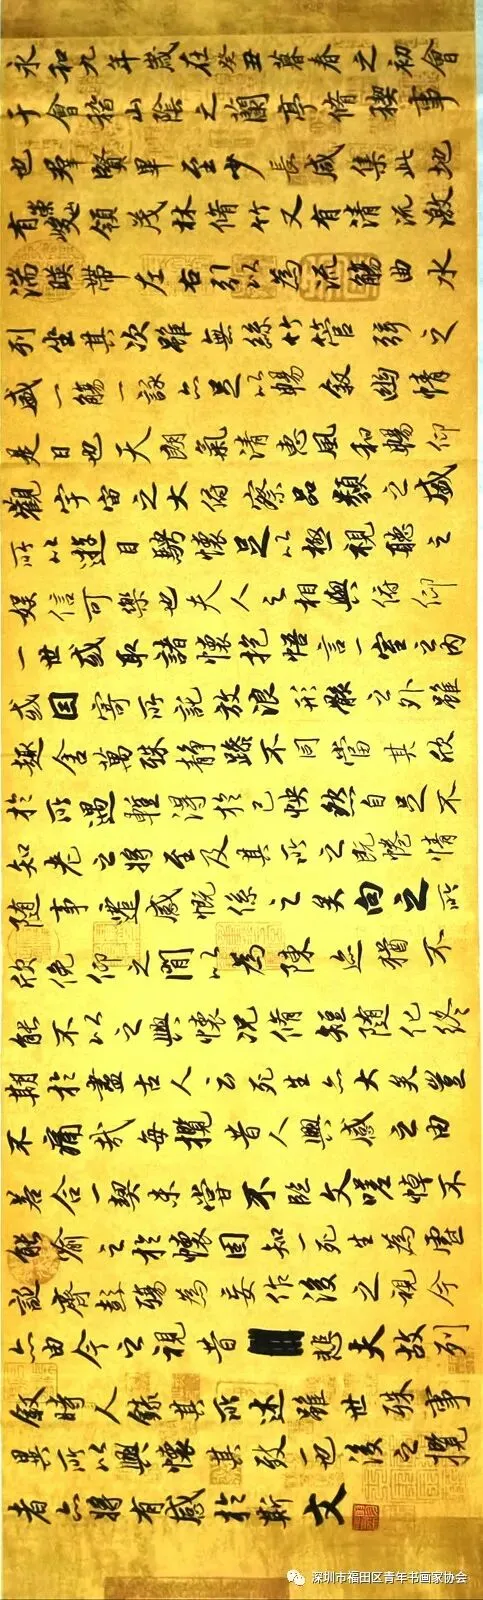 永和九年歲在癸丑暮春之初會
于會稽山陰之蘭亭脩稧事
也羣賢畢至少長咸集此地
有崇峻領茂林脩竹又有清流激
湍暎帶左右引以為流觴曲水
列坐其次雖無絲竹管弦之
盛一觴一詠亦足以暢敘幽情
是日也天朗氣清惠風和暢仰
觀宇宙之大俯察品類之盛
所以遊目騁懷足以極視聽之
娛信可樂也夫人之相與俯仰
一世或取諸懷抱悟言一室之內
或因寄所託放浪形骸之外雖
趣舍萬殊靜躁不同當其欣
於所遇暫得於己怏然自足不
知老之將至及其所之既惓情
隨事遷感慨係之矣向之所
欣俛仰之閒以為陳迹猶不
能不以之興懷況脩短隨化終
期於盡古人云死生亦大矣豈
不痛哉每攬昔人興感之由
若合一契未嘗不臨文嗟悼不
能喻之於懷固知一死生為虛
誕齊彭殤為妄作後之視今
亦由今之視昔悲夫故列
敘時人錄其所述雖世殊事
異所以興懷其致一也後之攬
者亦將有感於斯文
深圳市福田区青年书画家协会